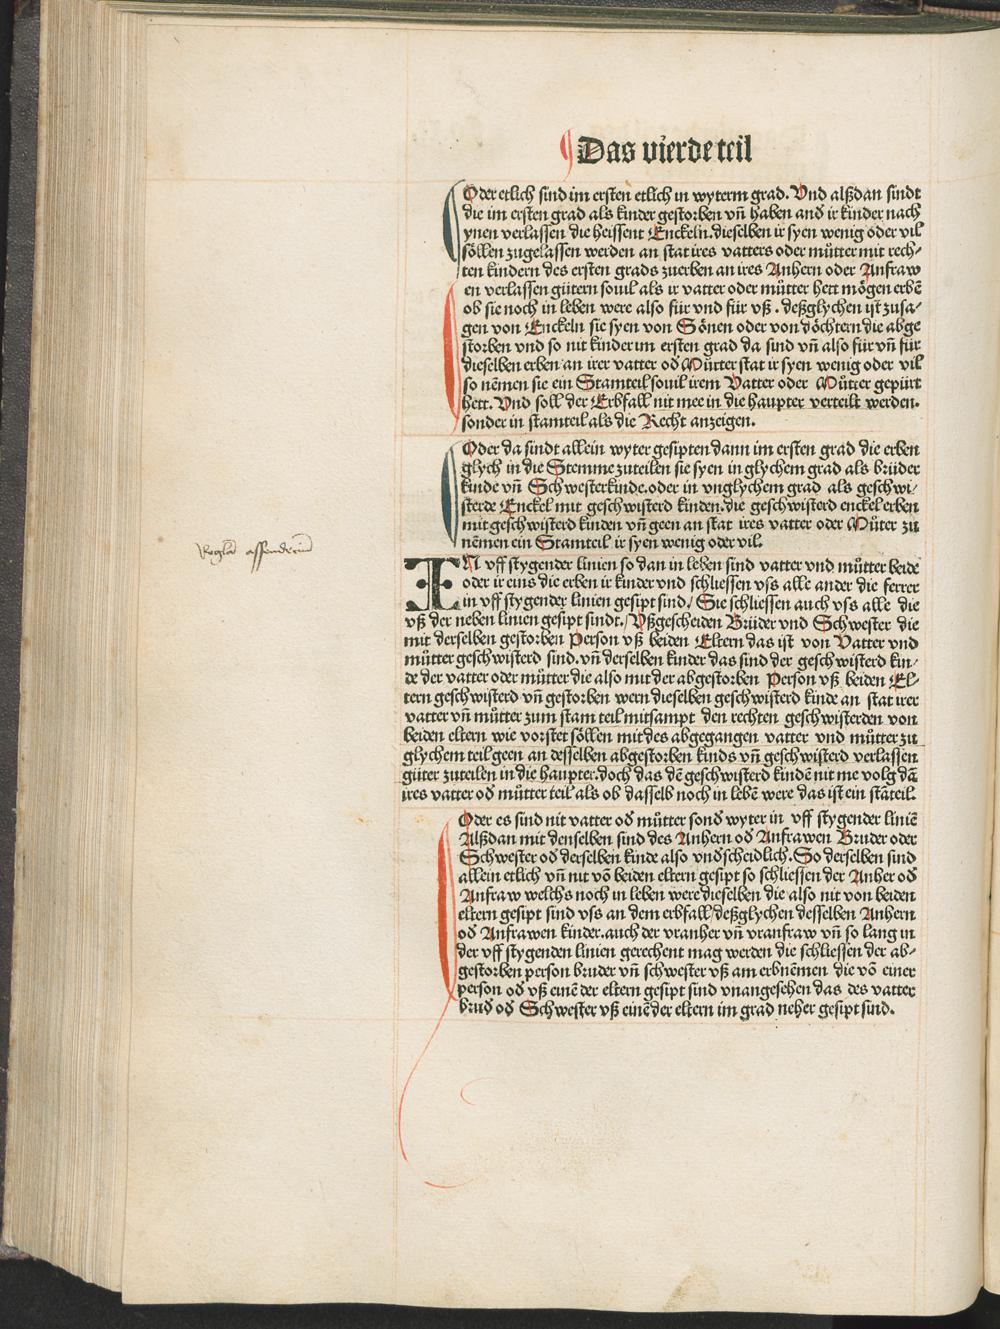 Das vierde teil
Oder etlich sind im ersten etlich in wyterm grad. Vnd alßdan sindt
die im ersten grad als kinder gestorben vñ haben and̕ ir kinder nach
ynen verlassen die heissent Enckeln. dieselben ir syen wenig oder vil
söllen zugelassen werden an stat ires vatters oder mütter mit rech⸗
ten kindern des ersten grads zuerben an ires Anhern oder Anfraw
en verlassen gütern souil als ir vatter oder můtter hett mögen erbẽ
ob sie noch in leben were also für vnd für vß. deßglychen ist zusa⸗
gen von Enckeln sie syen von Sönen oder von döchtern die abge
storben vnd so nit kinder im ersten grad da sind vñ also für vñ für
dieselben erben an irer vatter od̕ Můtter stat ir syen wenig oder vil
so nemen sie ein Stamteil souil irem Vatter oder Můtter gepürt
hett. Vnd soll der Erbfall nit mee in die haupter verteilt werden.
sonder in stamteil als die Recht anzeigen.
Oder da sindt allein wyter gesipten dann im ersten grad die erben
glych in die Stemme zuteilen sie syen in glychem grad als brüder
kinde vñ Schwesterkinde. oder in vnglychem grad als geschwi⸗
sterde Enckel mit geschwisterd kinden. die geschwisterd enckel erben
mit geschwisterd kinden vñ geen an stat ires vatter oder Můter zu
nemen ein Stamteil ir syen wenig oder vil.
Regla assendenciũ
IN vff stygender linien so dan in leben sind vatter vnd můtter beide
oder ir eins die erben ir kinder vnd schliessen vss alle ander die ferrer
in vff stygender linien gesipt sind / Sie schliessen auch vss alle die
vß der neben linien gesipt sindt. / Vßgescheiden Brüder vnd Schwester die
mit derselben gestorben Person vß beiden Eltern das ist von Vatter vnd
můtter geschwisterd sind. vñ derselben kinder das sind der geschwisterd kin⸗
de der vatter oder můtter die also mit der abgestorben Person vß beiden El⸗
tern geschwisterd vñ gestorben wern dieselben geschwisterd kinde an stat irer
vatter vñ můtter zum stam teil mitsampt den rechten geschwisterden von
beiden eltern wie vorstet söllen mit des abgegangen vatter vnd můtter zu
glychem teil geen an desselben abgestorben kinds vñ geschwisterd verlassen
güter zuteilen in die haupter. doch das dẽ geschwisterd kindẽ nit me volg dã
ires vatter od̕ můtter teil als ob dasselb noch in lebẽ were das ist ein stãteil.
Oder es sind nit vatter od̕ můtter sond̕ wyter in vff stygender liniẽ
Alßdan mit denselben sind des Anhern od̕ Anfrawen Bruder oder
Schwester od̕ derselben kinde also vnd̕scheidlich. So derselben sind
allein etlich vñ nit võ beiden eltern gesipt so schliessen der Anher od̕
Anfraw welchs noch in leben were dieselben die also nit von beiden
eltern gesipt sind vss an dem erbfall / deßglychen desselben Anhern
od̕ Anfrawen kinder. auch der vranher vñ vranfraw vñ so lang in
der vff stygenden linien gerechent mag werden die schliessen der ab⸗
gestorben person bruder vñ schwester vß am erbnemen die võ einer
person od̕ vß einẽ der eltern gesipt sind vnangesehen das des vatter
brud̕ od̕ Schwester vß einẽ der eltern im grad neher gesipt sind.